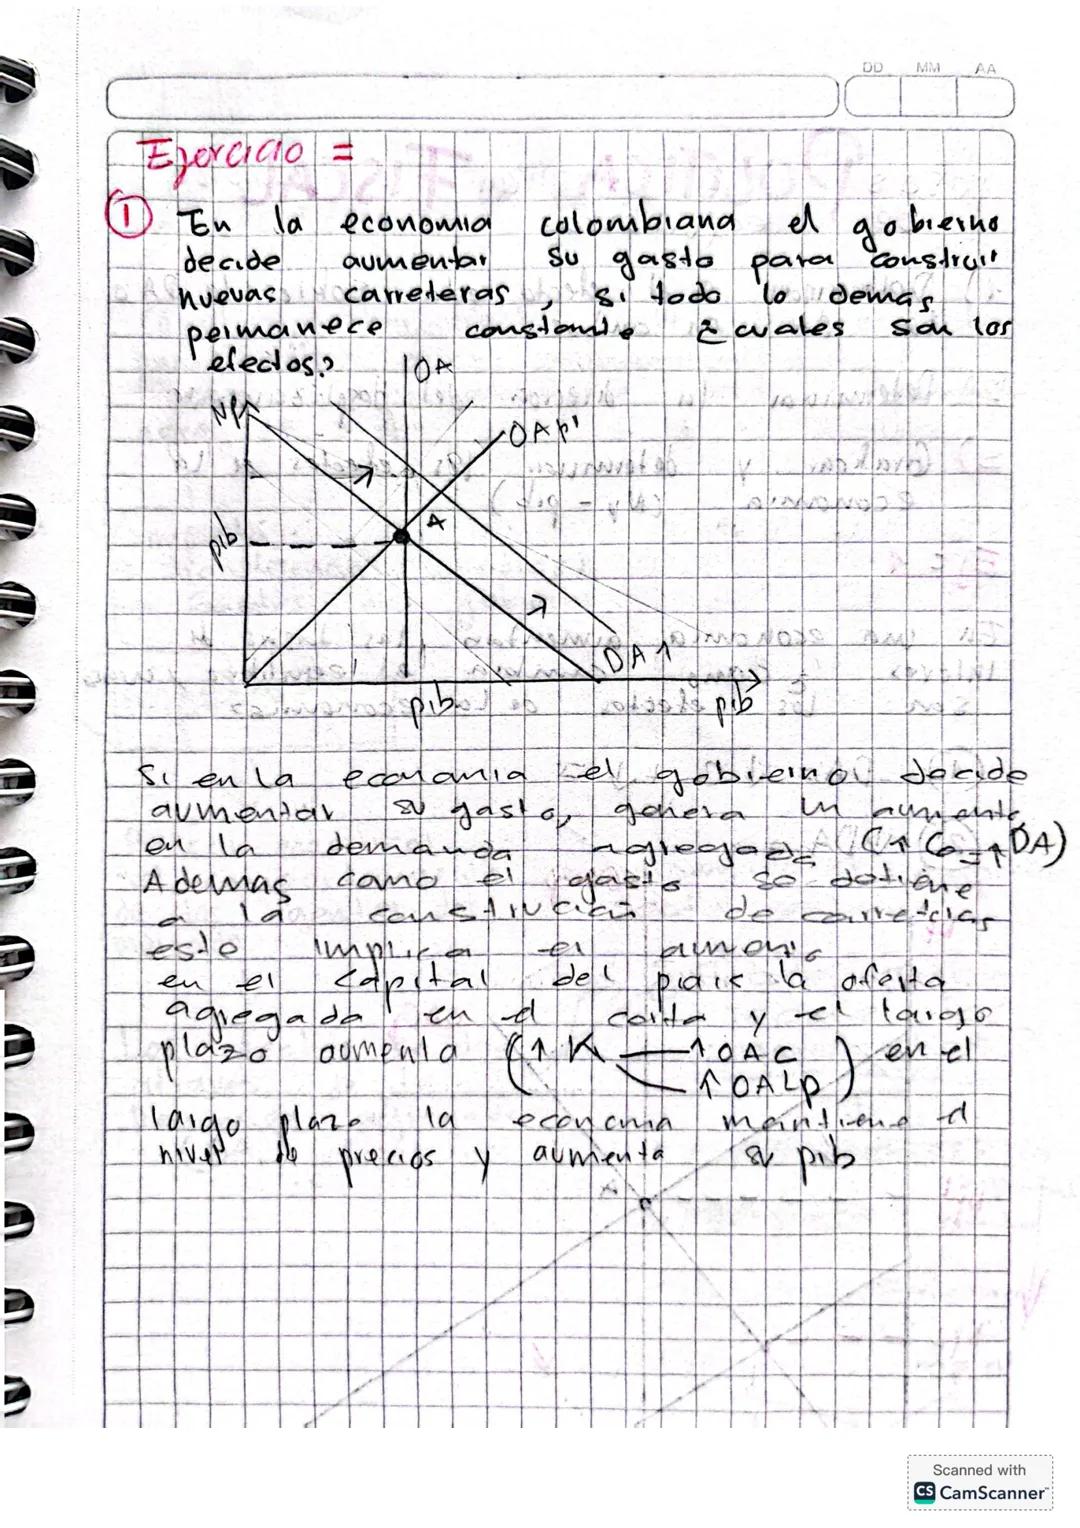 DD MM AA
Ejercicio =
① En la economia colombiana el gobierno
decide aumentar su gasto para construir
nuevas carreteras, si todo lo demas
permanece constante ¿cuales son los
efectos?
OA
Np
OAp'
A
pib
DA↑
pib
pib
Si en la economia el gobierno decide
aumentar su gasto, genera un aumento
en la demanda agregada (↑ G = ↑ DA)
Ademas como el gasto se
a la construcion de carreteras
esto implica el aumento
en el capital del país la oferta
agregada en el corto y el largo
plazo aumenta (↑ K — ↑ OAC) en el
↑ OALp
largo plazo la economia mantiene el
nivel de precios y aumenta su pib
Scanned with
CS CamScanner